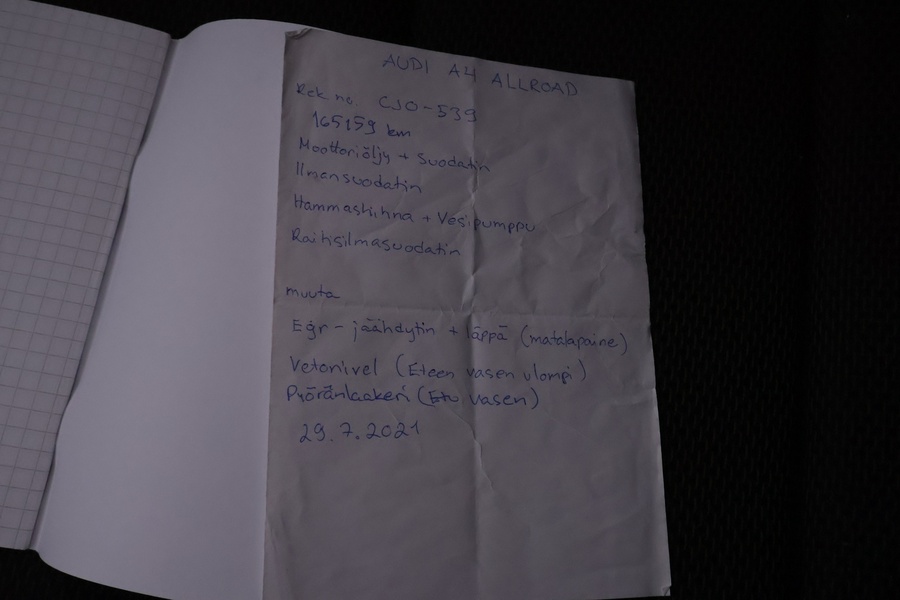 AUDI A4 ALLROAD
Rek no. CJO-539
165159 km
Moottoriöljy + Suodatin
Ilmansuodatin
Hammashihna + Vesipumppu
Raitisilmasuodatin
muuta
Egr - jäähdytin + läppä (matalapaine)
Vetonivel (Eteen vasen ulompi)
Pyöränlaakeri (Etu vasen)
29.7.2021